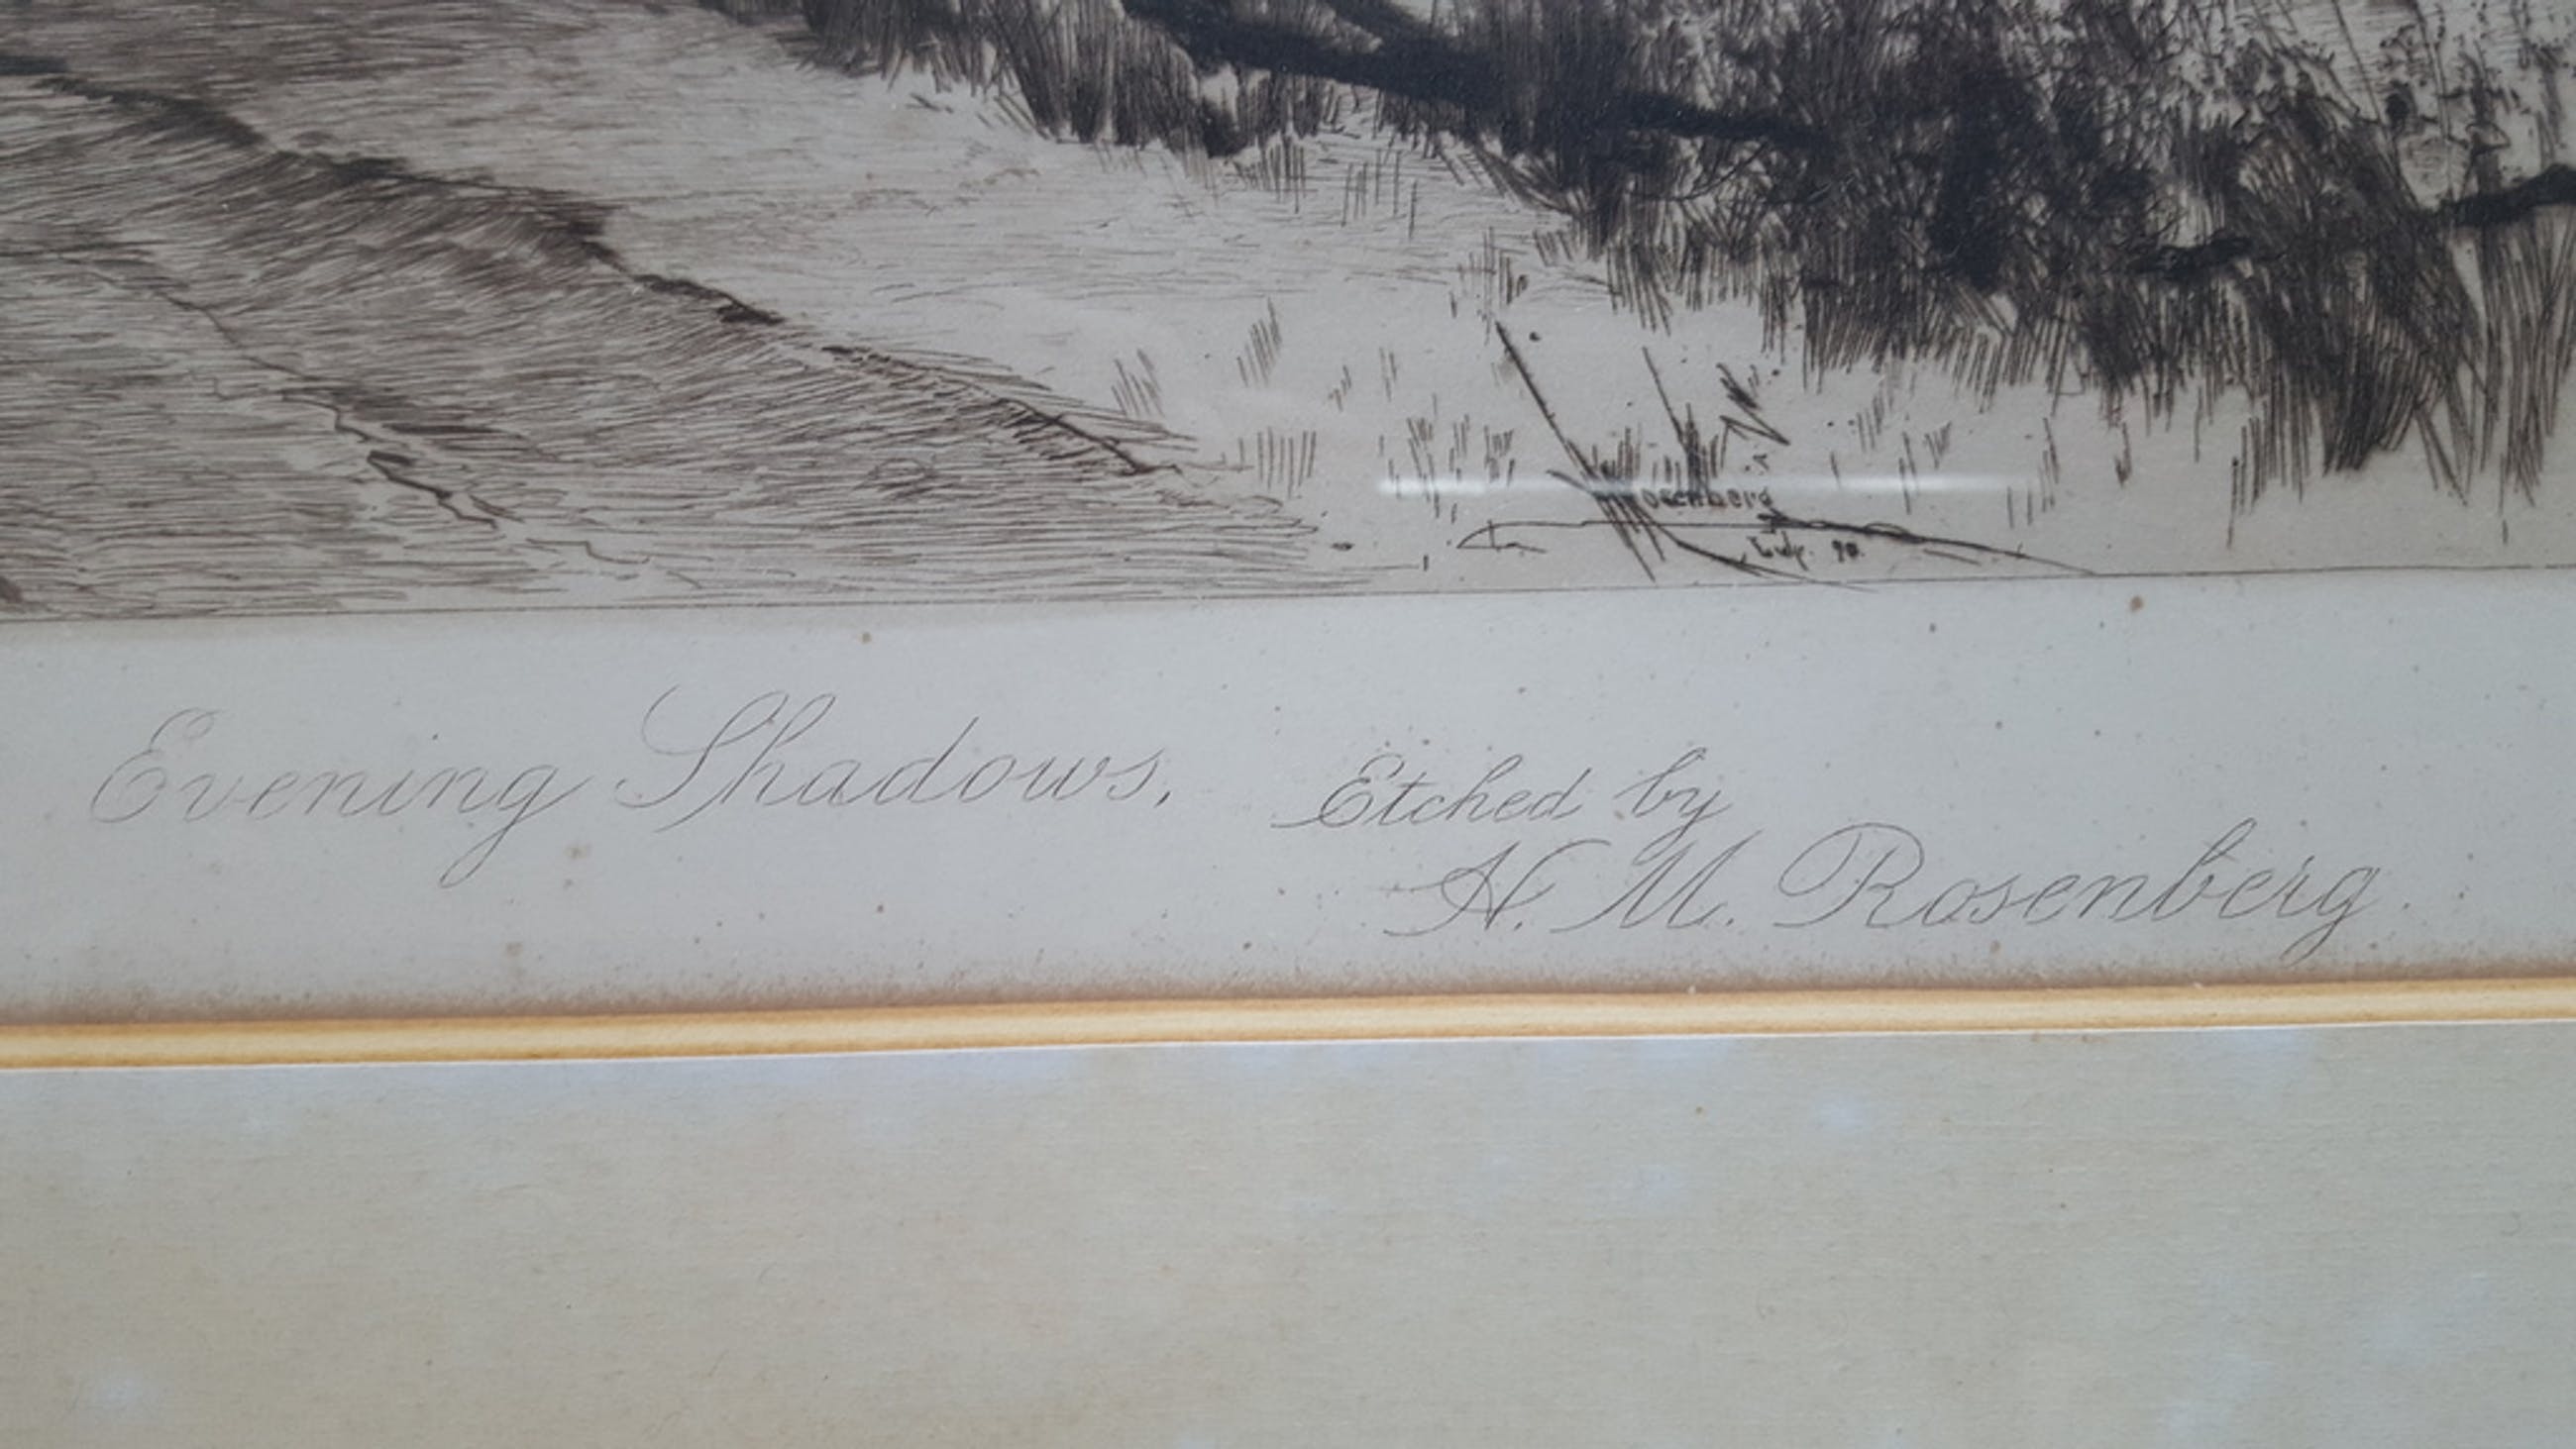 Rosenberg
Evening Shadows,
Etched by
H. M. Rosenberg.